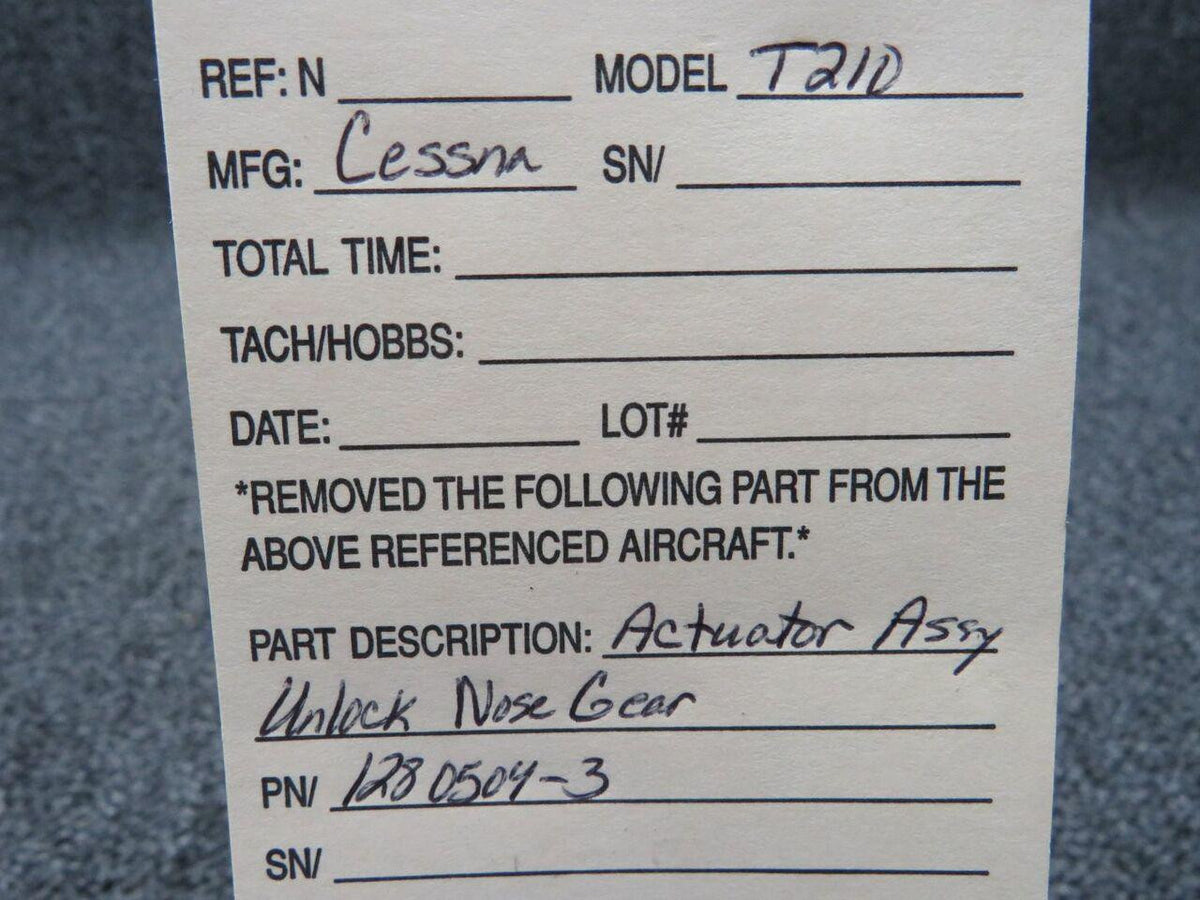 REF: N MODEL T210
MFG: Cessna SN/
TOTAL TIME:
TACH/HOBBS:
DATE: LOT#
*REMOVED THE FOLLOWING PART FROM THE
ABOVE REFERENCED AIRCRAFT.*
PART DESCRIPTION: Actuator Assy
Unlock Nose Gear
PN/ 1280504-3
SN/